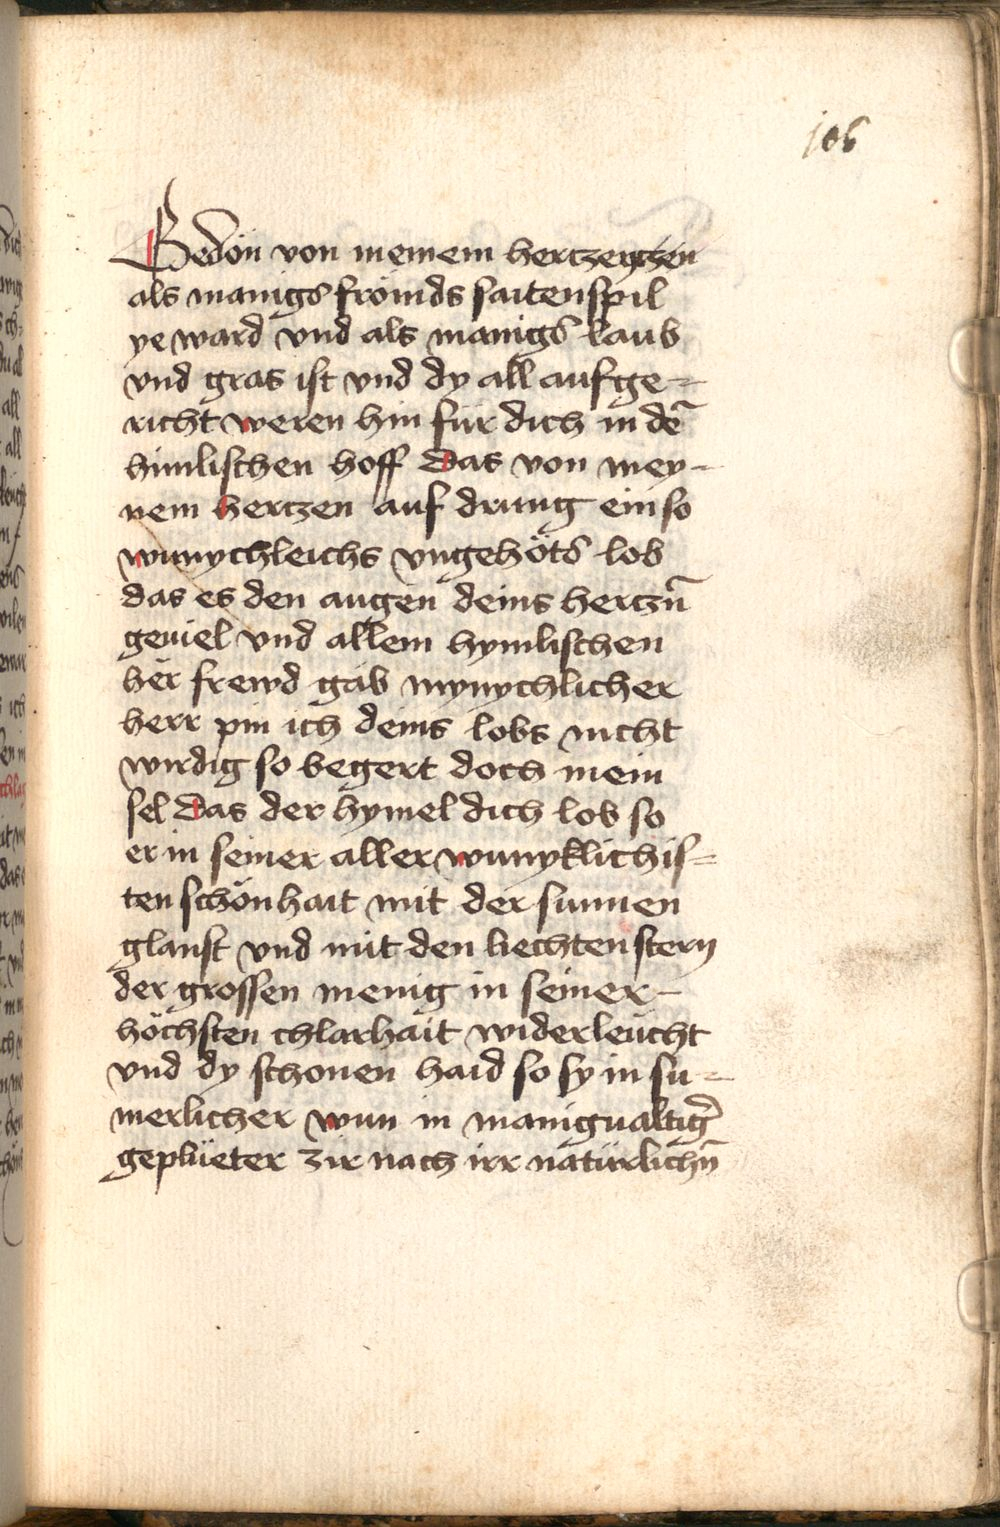 106
Gedön von meinem hertzen
als manigs frömds saitenspil
ye ward vnd als manigs laub
vnd gras ist vnd dy all aufge-
richt weren hin für dich in dē
himlischen hoff Das von mey-
nem hertzen auf drung ein so
wunychleichs vngehöts lob
das es den augen deins hertzn̄
geuiel vnd allem hymlischen
her frewd gäb mynychlicher
herr pin ich deins lobs nicht
wirdig so begert doch mein
sel Das der hymel dich lob so
er in seiner aller wunyklichis-
ten schönhait mit der sunnen
glanst vnd mit den liechten stern
der grossen menig in seiner
höchsten chlarhait widerleücht
vnd dy schonen haid so sy in su-
merlicher wun in manigualtigr̄
geplüeter zir nach irr natürlichn̄